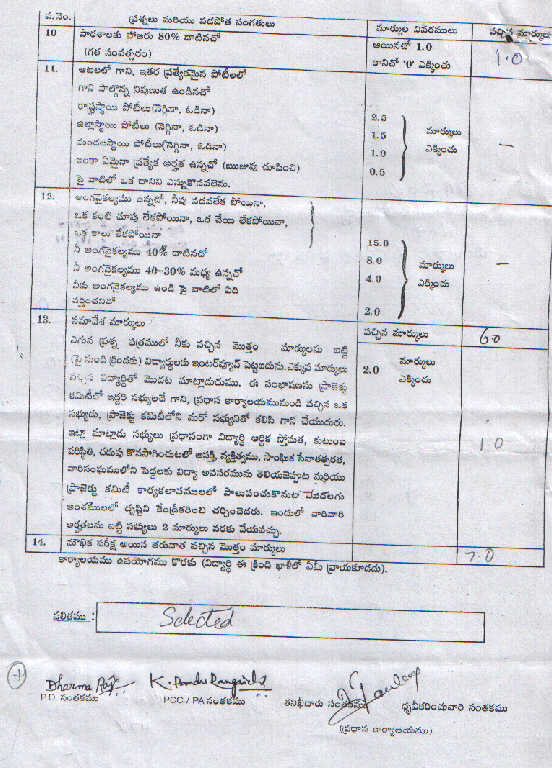 ప.నెం. ప్రశ్నలు మరియు పడపోత సంగతులు మార్కుల వివరములు వచ్చిన మార్కులు
10 పాఠశాలకు హాజరు 80% దాటినచో అయినచో 1.0 1.0
(గత సంవత్సరం) కానిచో '0' ఎక్కించు
11. ఆటలలో గాని, ఇతర ప్రత్యేకమైన పోటీలలో
గాని పాల్గొన్న నిపుణత ఉండినచో
రాష్ట్రస్థాయి పోటీలు(నెగ్గినా, ఓడినా) 2.5 మార్కులు
జిల్లాస్థాయి పోటీలు (నెగ్గినా, ఓడినా) 1.5 ఎక్కించు –
మండలస్థాయి పోటీలు(నెగ్గినా, ఓడినా) 1.0
ఇంకా ఏమైనా ప్రత్యేక అర్హత ఉన్నచో (ఋజువు చూపించి) 0.5
పై వాటిలో ఒక దానిని ఎన్నుకొనవలెను.
12. అంగవైకల్యము ఉన్నచో, నీవు నడవలేక పోయినా,
ఒక కంటి చూపు లేకపోయినా, ఒక చేయి లేకపోయినా,
ఒక కాలు లేకపోయినా 15.0
నీ అంగవైకల్యము 40% దాటినచో 8.0 మార్కులు –
నీ అంగవైకల్యము 40-30% మధ్య ఉన్నచో 4.0 ఎక్కించు
నీకు అంగవైకల్యము ఉండి పై వాటిలో ఏది
వర్తించనిచో 2.0
13. సమావేశ మార్కులు వచ్చిన మార్కులు 6.0
ఎగువ ప్రశ్న పత్రములో నీకు వచ్చిన మొత్తం మార్కులను బట్టి 2.0 మార్కులు
(పై నుండి క్రిందకు) విద్యార్థులకు ఇంటర్వ్యూస్ పెట్టబడును.ఎక్కువ మార్కులు ఎక్కించు
వచ్చిన విద్యార్థితో మొదట మాట్లాడుదుము. ఈ సంభాషణను ప్రాజెక్టు
కమిటీలో ఇద్దరి సభ్యులచే గాని, ప్రధాన కార్యాలయమునుండి వచ్చిన ఒక
సభ్యుడు, ప్రాజెక్టు కమిటీలోని మరో సభ్యునితో కలిసి గాని చేయుదురు.
ఇట్లా మాట్లాడు సభ్యులు ప్రధానంగా విద్యార్థి ఆర్థిక స్తోమత, కుటుంబ 1.0
పరిస్థితి, చదువు కొనసాగించుటలో ఆసక్తి, వ్యక్తిత్వము, సాంఘిక సేవాతత్పరత,
వారిసంఘములోని పెద్దలకు విద్యా అవసరమును తెలియచెప్పుట మరియు
ప్రాజెక్టు కమిటీ కార్యకలాపములలో పాలుపంచుకొనుట మొదలగు
అంశములలో దృష్టిని కేంద్రీకరించి చర్చించెదరు. ఇందులో వారివారి
అర్హతలను బట్టి సభ్యులు 2 మార్కులు వరకు వేయవచ్చు.
14. మౌఖిక పరీక్ష అయిన తరువాత వచ్చిన మొత్తం మార్కులు 7.0
కార్యాలయము ఉపయోగము కొరకు (విద్యార్థి ఈ క్రింది ఖాళీలో ఏమీ వ్రాయకూడదు).
ఫలితము : Selected
Dharma Raju
P.D. సంతకము PCC / PA సంతకము తనిఖీదారు సంతకము ధృవీకరించువారి సంతకము
(ప్రధాన కార్యాలయము)